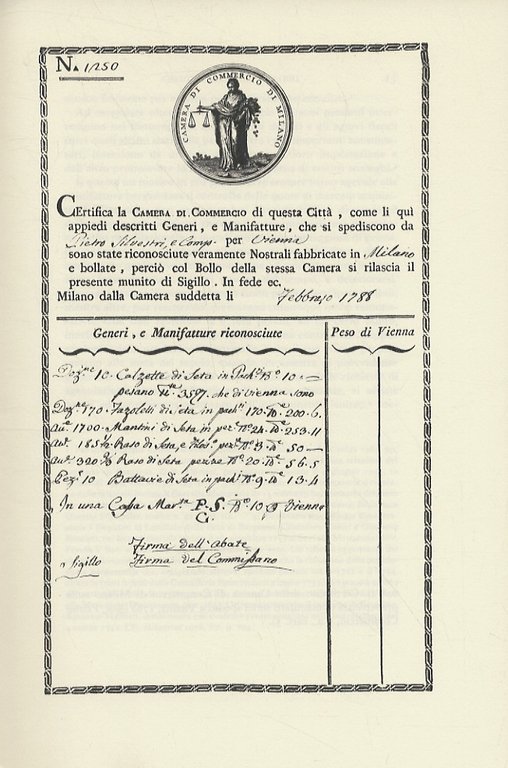 N.A 1250
CAMERA DI COMMERCIO DI MILANO
CErtifica la CAMERA DI COMMERCIO di questa Città , come li quì
appiedi descritti Generi , e Manifatture, che si spediscono da
Pietro Silvestri, e Comp. per Vienna
sono state riconosciute veramente Nostrali fabbricate in Milano
e bollate, perciò col Bollo della stessa Camera si rilascia il
presente munito di Sigillo . In fede ec.
Milano dalla Camera suddetta li Febbraio 1788
Generi , e Manifatture riconosciute
Peso di Vienna
10 Calzette di Seta in 10
pesano 3597. che di Vienna sono
170 Fazoletti di seta in 170 200.6.
1700 Mantini di Seta in 24 253.11
185 Raso di Seta, e 3 50
320 Raso di Seta 20 56.5
10 Battavie di Seta in 9 13.4
In una Cassa P.S. 10 Vienna
C.
Firma dell'Abate
Sigillo Firma del Commissario